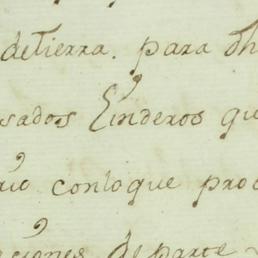 detierra. para dh
sados Linderos qu
rio conloque pro
ciones de parte